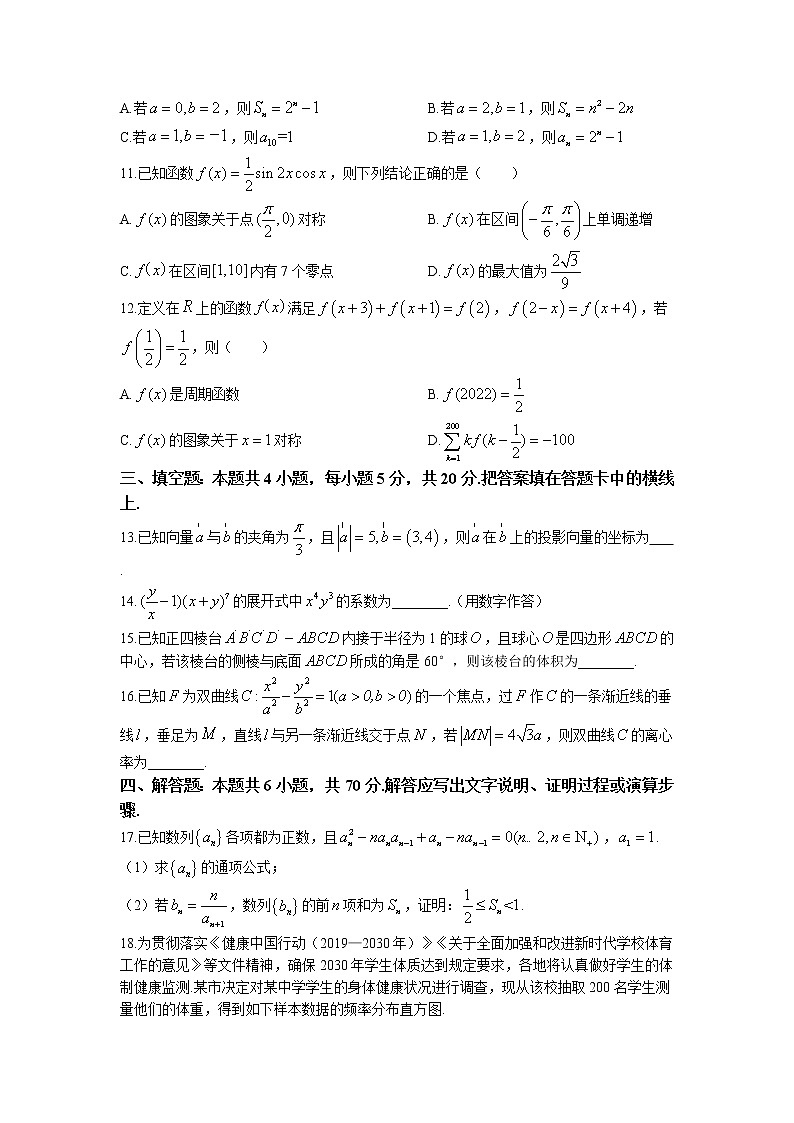 A.若a = 0, b = 2，则Sₙ = 2ⁿ − 1 B.若a = 2, b = 1，则Sₙ = n² − 2n
C.若a = 1, b = −1，则a₁₀=1 D.若a = 1, b = 2，则aₙ = 2ⁿ − 1
11.已知函数 f(x) = \frac{1}{2}sin 2x cos x，则下列结论正确的是（ ）
A. f(x)的图象关于点(\frac{π}{2},0)对称 B. f(x)在区间(−\frac{π}{6},\frac{π}{6})上单调递增
C. f(x)在区间[1,10]内有7个零点 D. f(x)的最大值为\frac{2√3}{9}
12.定义在R上的函数f(x)满足f(x+3)+f(x+1)=f(2)，f(2−x)=f(x+4)，若
f(\frac{1}{2})=\frac{1}{2},则（ ）
A. f(x)是周期函数 B. f(2022)=\frac{1}{2}
C. f(x)的图象关于x=1对称 D.\sum_{k=1}^{200} kf(k−\frac{1}{2})=−100
三、填空题：本题共4小题，每小题5分，共20分.把答案填在答题卡中的横线
上.
13.已知向量a与b的夹角为\frac{π}{3}，且|a|=5,b=(3,4)，则a在b上的投影向量的坐标为___
.
14. (\frac{y}{x}−1)(x+y)⁷的展开式中x⁴y³的系数为________.（用数字作答）
15.已知正四棱台A'B'C'D'−ABCD内接于半径为1的球O，且球心O是四边形ABCD的
中心，若该棱台的侧棱与底面ABCD所成的角是60°，则该棱台的体积为________.
16.已知F为双曲线C:\frac{x²}{a²}−\frac{y²}{b²}=1(a>0,b>0)的一个焦点，过F作C的一条渐近线的垂
线l，垂足为M，直线l与另一条渐近线交于点N，若|MN|=4√3a，则双曲线C的离心
率为________.
四、解答题：本题共6小题，共70分.解答应写出文字说明、证明过程或演算步
骤.
17.已知数列{aₙ}各项都为正数，且aₙ²−naₙaₙ₋₁+aₙ−naₙ₋₁=0(n… 2,n∈N₊)，a₁=1.
（1）求{aₙ}的通项公式；
（2）若bₙ=\frac{n}{aₙ₊₁}，数列{bₙ}的前n项和为Sₙ，证明：\frac{1}{2}≤Sₙ<1.
18.为贯彻落实《健康中国行动（2019—2030年）》《关于全面加强和改进新时代学校体育
工作的意见》等文件精神，确保2030年学生体质达到规定要求，各地将认真做好学生的体
制健康监测.某市决定对某中学学生的身体健康状况进行调查，现从该校抽取200名学生测
量他们的体重，得到如下样本数据的频率分布直方图.